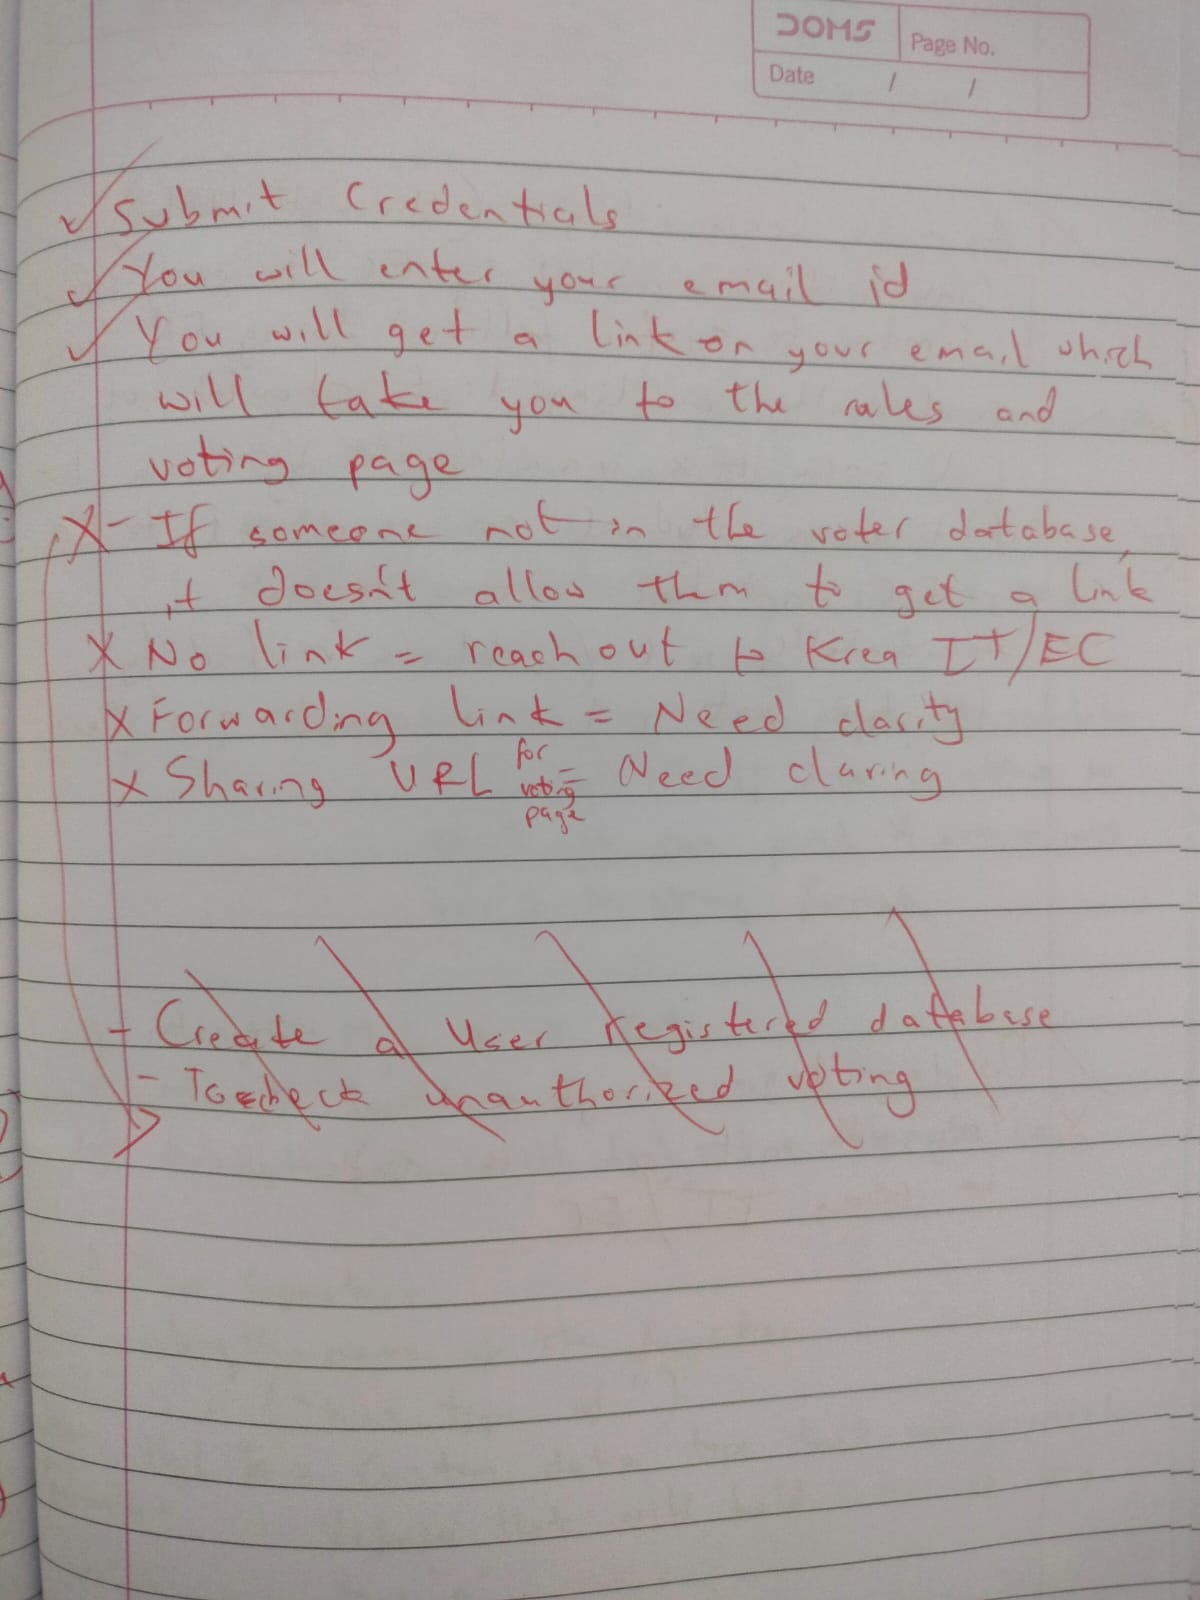 DOMS
Page No.
Date / /
✓ Submit Credentials
✓ You will enter your email id
✓ You will get a link on your email which
will take you to the rules and
voting page
X - If someone not in the voter database,
it doesn't allow them to get a link
X No link = reach out to Krea IT/EC
X Forwarding link = Need clarity
X Sharing URL for voting page = Need claring
- Create a User registered database
- To check unauthorized voting